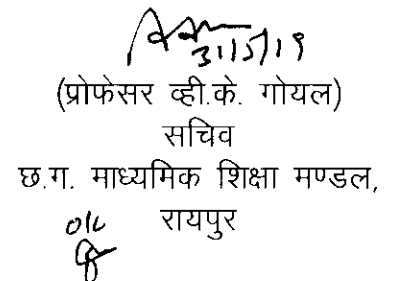 31/5/19
(प्रोफेसर व्ही.के. गोयल)
सचिव
छ.ग. माध्यमिक शिक्षा मण्डल,
रायपुर
o/c